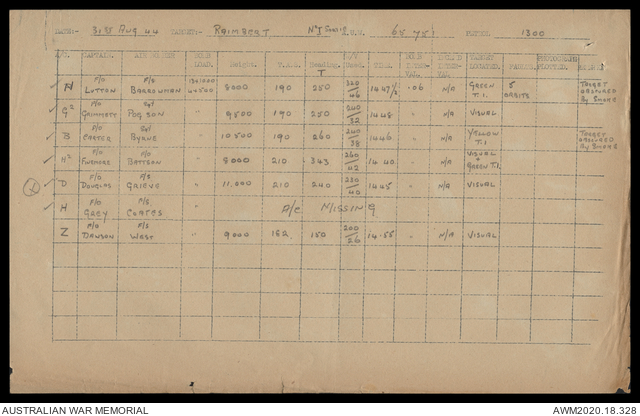 DATE:- 31st Aug 44 TARGET:- RAIMBERT No I 65 751 PETROL 1300
A/C. CAPTAIN. AIR BOMBER BOMB LOAD. Height. T.A.S. Heading. T Wind. TIME. BOMB INTER- VAL. TARGET LOCATED. PHOTOGRAPHS PLOTTED.
F/O LUTTON F/S BARROWMAN 13x1000 4x500 8000 190 250 320/46 1447½ .06 N/A GREEN T.I. 5 ORBITS TARGET OBSCURED By SMOKE
G² F/O GRIMMETT Sgt POGSON " 9500 190 250 240/32 1448 " N/A VISUAL
B F/O CARTER Sgt BYRNE " 10500 190 260 240/38 1446 " N/A YELLOW T.I TARGET OBSCURED By SMOKE
H² F/O F/O BATTSON " 8000 210 343 260/42 14.40 " N/A VISUAL + GREEN T.I.
D F/O DOUGLAS F/S GRIEVE " 11,000 210 240 230/40 1445 " N/A VISUAL
H F/O GREY F/S COATES " A/C MISSING
Z F/O DAWSON F/S WEST " 9000 162 150 200/26 14.55 " N/A VISUAL
AUSTRALIAN WAR MEMORIAL AWM2020.18.328